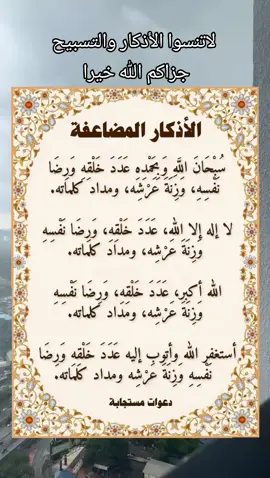 لاتنسوا الأذكار والتسبيح
جزاكم الله خيرا
الأذكار المضاعفة
سُبْحَانَ اللَّهِ وبِحَمْدِهِ عَدَدَ خَلْقِهِ وَرِضَا
نَفْسِهِ، وزِنَةَ عَرْشِهِ، ومِدادَ كَلِماتِهِ.
لا إله إلا الله، عَدَدَ خَلْقِهِ، وَرِضَا نَفْسِهِ
وزِنَةَ عَرْشِهِ، ومِدَادَ كَلِماتِهِ.
الله أكبر، عَدَدَ خَلْقِهِ، وَرِضَا نَفْسِهِ
وَزِنَةَ عَرْشِهِ، ومِدَادَ كَلِماتِهِ.
أستغفر الله وأتوب إليه عَدَدَ خَلْقِهِ وَرِضَا
نَفْسِهِ وزِنَةَ عَرْشِهِ ومداد كَلِماتِهِ.
دعوات مستجابة